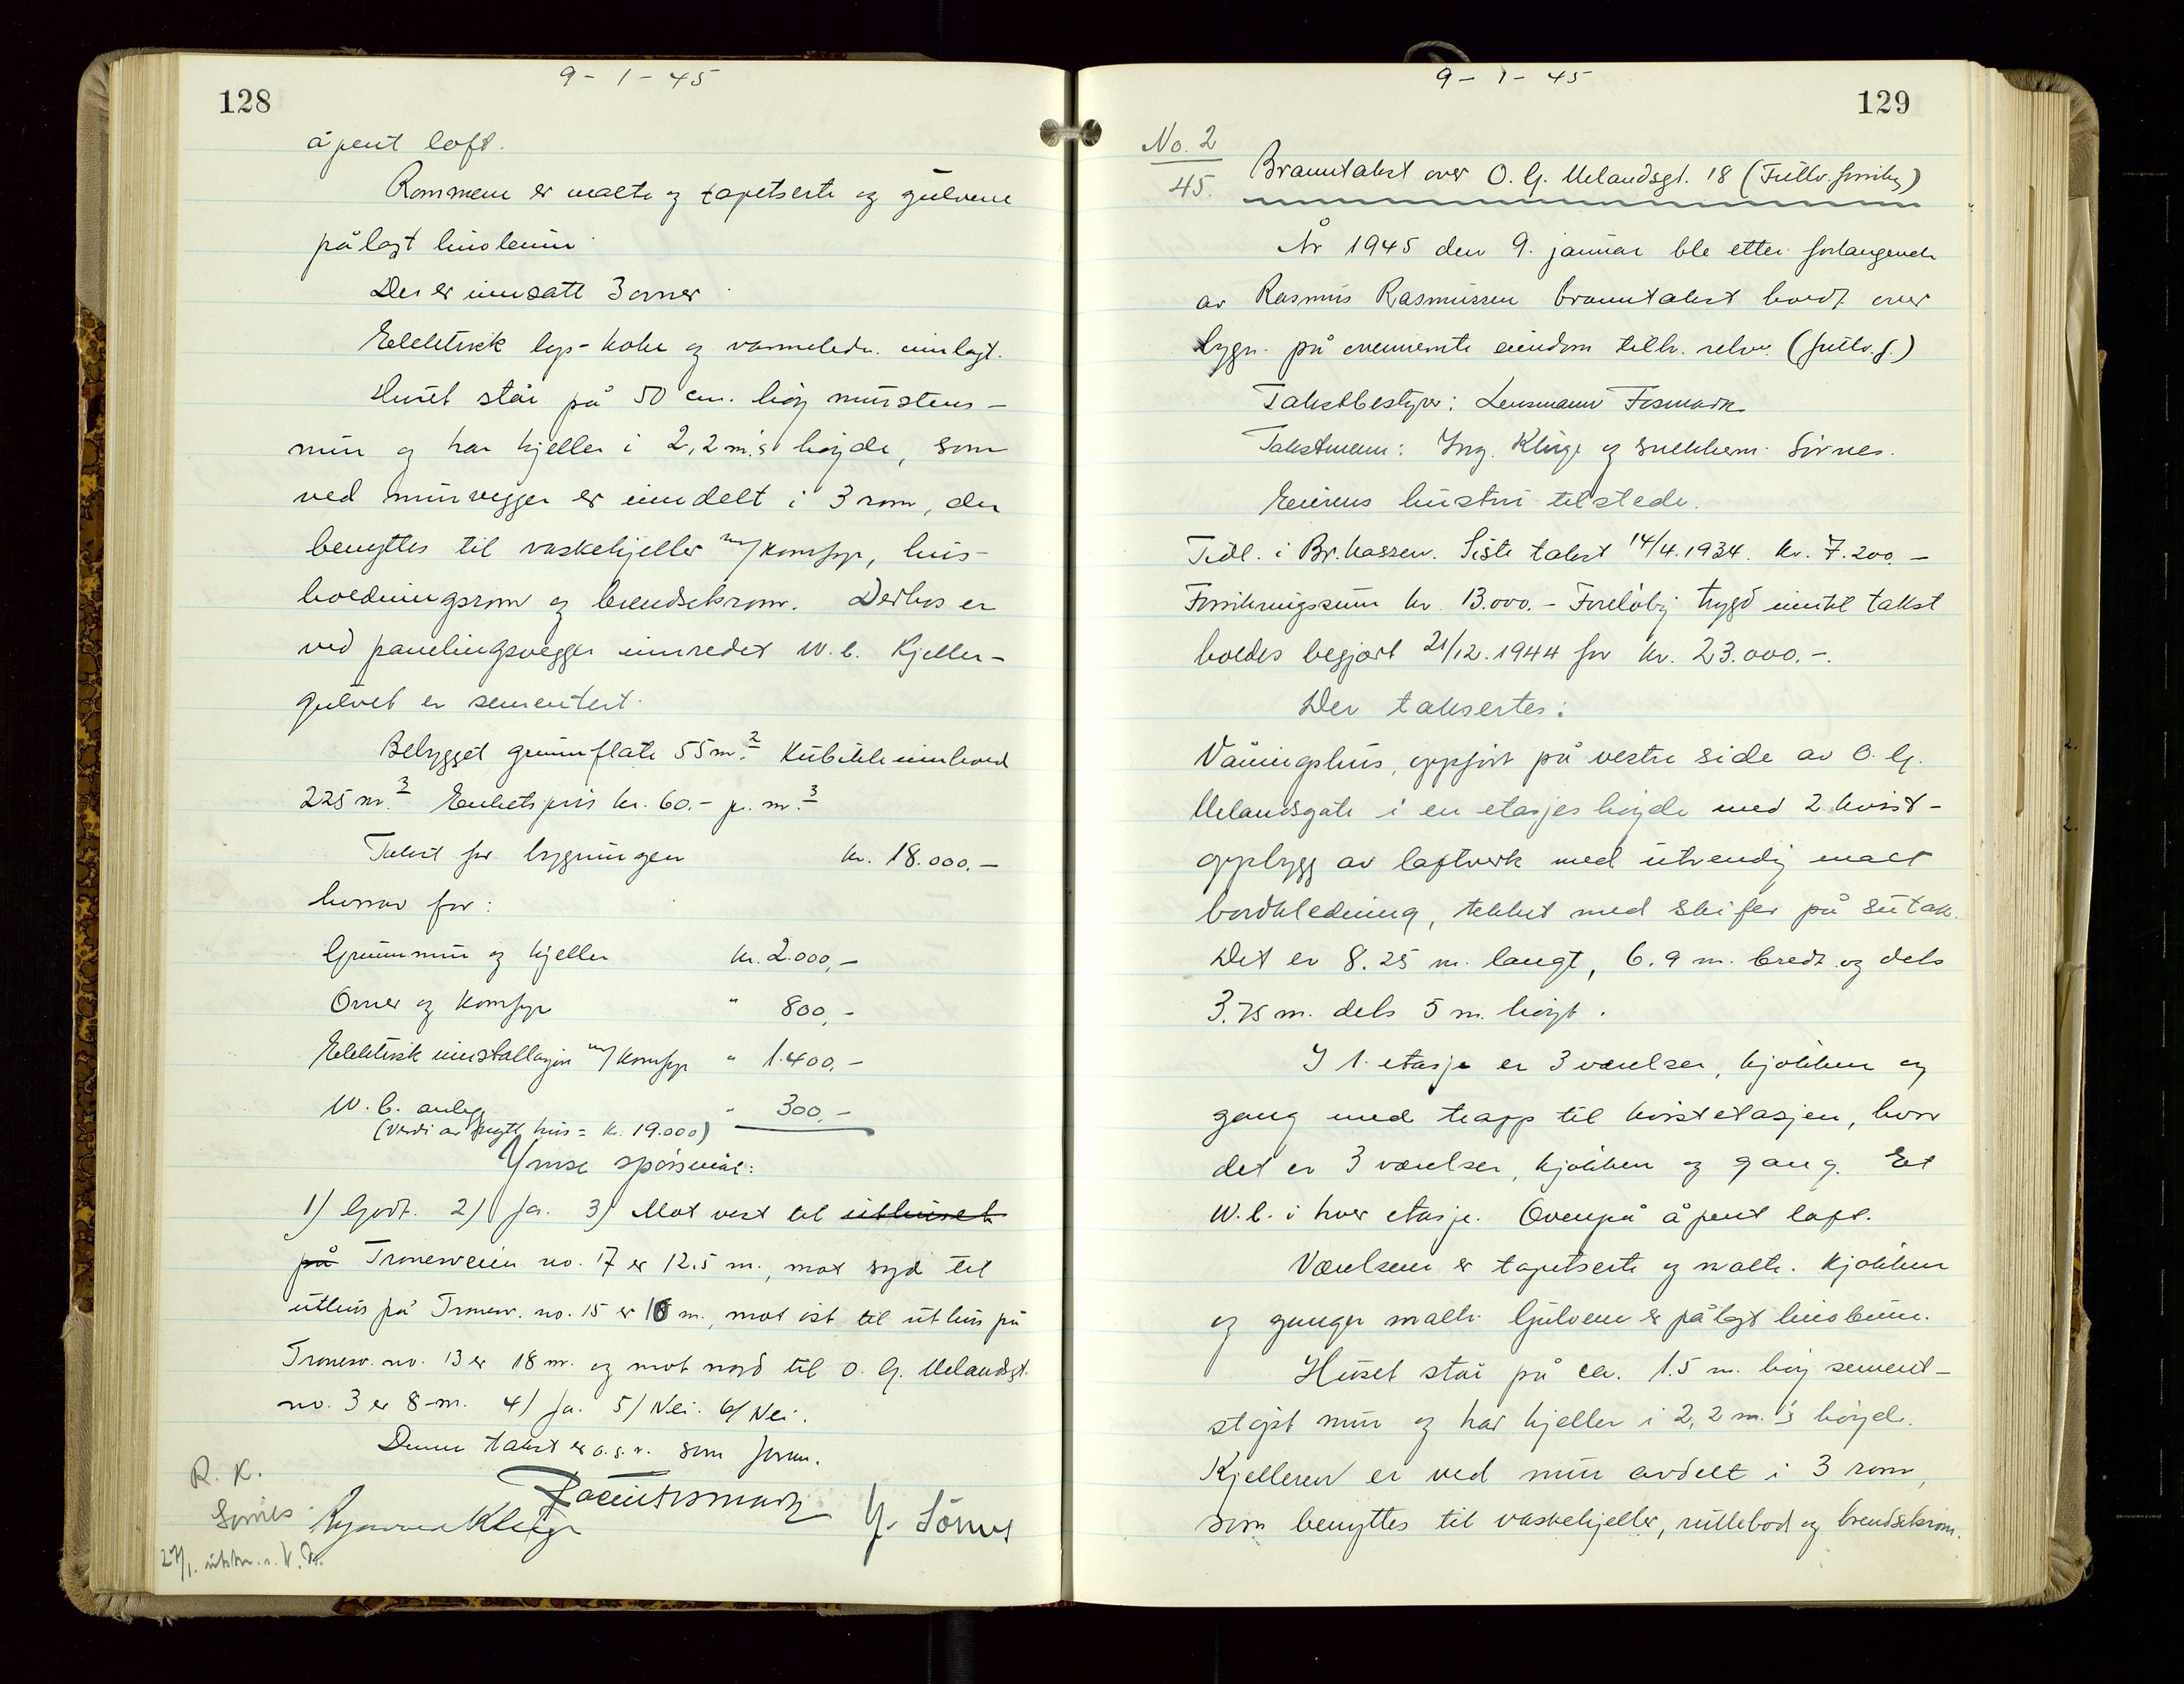 128
9-1-45
åpent loft.
Rommene er malte og tapetserte og gulvene
pålagt linoleum.
Der er innsatt 3 ovner.
Elektrisk lys- koke og varmeledn. innlagt.
Huset står på 50 cm. høy murstens-
mur og har kjeller i 2,2 m.'s høyde, som
ved murvegger er inndelt i 3 rom, der
benyttes til vaskekjeller m/komfyr, hus-
holdningsrom og brendselsrom. Derhos er
ved panelingsvegger innredet W.C. Kjeller-
gulvet er sementert.
Bebygget grunnflate 55 m.² Kubikkinnhold
225 m.³ Enhetspris kr. 60.- pr. m.³
Takst for bygningen kr. 18.000.-
hvorav for:
Grunnmur og kjeller kr. 2.000,-
Ovner og komfyr " 800,-
Elektrisk installasjon m/komfyr " 1.400,-
W.C. anlegg " 300,-
(Verdi av nytt hus = kr. 19.000)
Ymse spørsmål:
1) Godt. 2) Ja. 3) Mot vest til uthuset
på Tronesveien no. 17 er 12,5 m., mot syd til
uthus på Tronesv. no. 15 er 16 m., mot øst til uthus på
Tronesv. no. 13 er 18 m. og mot nord til O. G. Melandsgt.
no. 3 er 8 m. 4) Ja. 5) Nei. 6) Nei.
Denne takst er a.s.v. som forrn.
R. K.
Sørnes
27/1.
G. Sörnes
129
9-1-45
No. 2
45.
Branntakst over O. G. Melandsgt. 18 (Fullv. forsikr.)
År 1945 den 9. januar ble etter forlangende
av Rasmus Rasmussen branntakst holdt over
bygn. på ovennemte eiendom tilh. relvv. (fullv.f.)
Takstbestyrer: Lensmann Fosmark
Takstmenn: Ing. Kluge og snekkerm. Sörnes.
Eierens hustru tilstede.
Tidl. i Br.kassen. Siste takst 14/4.1934. kr. 7.200.-
Forsikringssum kr. 13.000.- Foreløbig trygd inntil takst
holdes begjært 21/12.1944 for kr. 23.000.-.
Der taksertes:
Våningshus, oppført på vestre side av O. G.
Melandsgate i en etasjes høyde med 2 kvist-
oppbygg av laftverk med utvendig malt
bordkledning, tekket med skifer på sutak.
Det er 8.25 m. langt, 6.9 m. bredt og dels
3.75 m. dels 5 m. høyt.
I 1. etasje er 3 værelser, kjøkken og
gang med trapp til kvistetasjen, hvor
det er 3 værelser, kjøkken og gang. Et
W.C. i hver etasje. Ovenpå åpent loft.
Værelsene er tapetserte og malte. Kjøkken
og ganger malte. Gulvene er pålagt linoleum.
Huset står på ca. 1.5 m. høy sement-
støpt mur og har kjeller i 2,2 m.'s høyde.
Kjelleren er ved mur avdelt i 3 rom,
som benyttes til vaskekjeller, rullebod og brendselsrom.